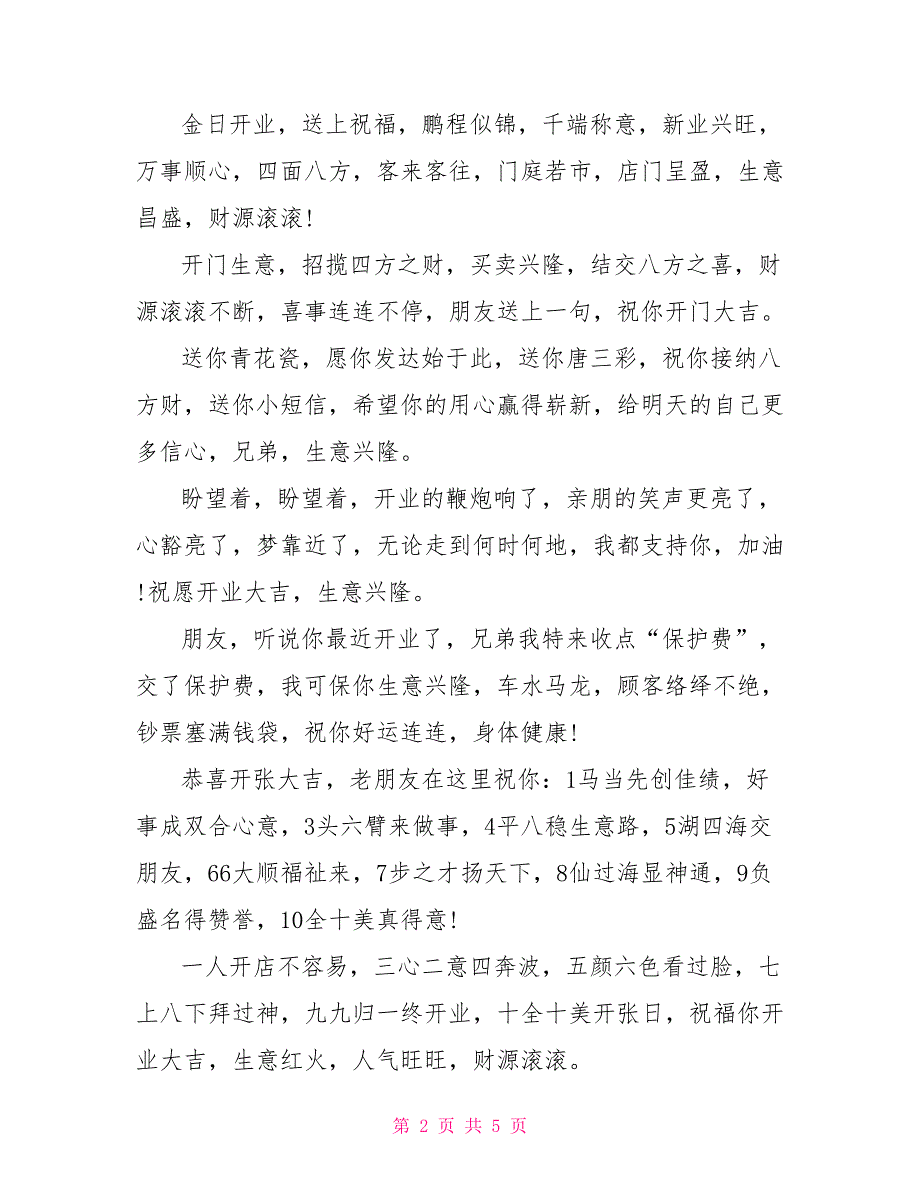 金日开业，送上祝福，鹏程似锦，千端称意，新业兴旺，
万事顺心，四面八方，客来客往，门庭若市，店门呈盈，生意
昌盛，财源滚滚!
开门生意，招揽四方之财，买卖兴隆，结交八方之喜，财
源滚滚不断，喜事连连不停，朋友送上一句，祝你开门大吉。
送你青花瓷，愿你发达始于此，送你唐三彩，祝你接纳八
方财，送你小短信，希望你的用心赢得崭新，给明天的自己更
多信心，兄弟，生意兴隆。
盼望着，盼望着，开业的鞭炮响了，亲朋的笑声更亮了，
心豁亮了，梦靠近了，无论走到何时何地，我都支持你，加油
!祝愿开业大吉，生意兴隆。
朋友，听说你最近开业了，兄弟我特来收点“保护费”，
交了保护费，我可保你生意兴隆，车水马龙，顾客络绎不绝，
钞票塞满钱袋，祝你好运连连，身体健康!
恭喜开张大吉，老朋友在这里祝你：1马当先创佳绩，好
事成双合心意，3头六臂来做事，4平八稳生意路，5湖四海交
朋友，66大顺福祉来，7步之才扬天下，8仙过海显神通，9负
盛名得赞誉，10全十美真得意!
一人开店不容易，三心二意四奔波，五颜六色看过脸，七
上八下拜过神，九九归一终开业，十全十美开张日，祝福你开
业大吉，生意红火，人气旺旺，财源滚滚。
第 2 页 共 5 页